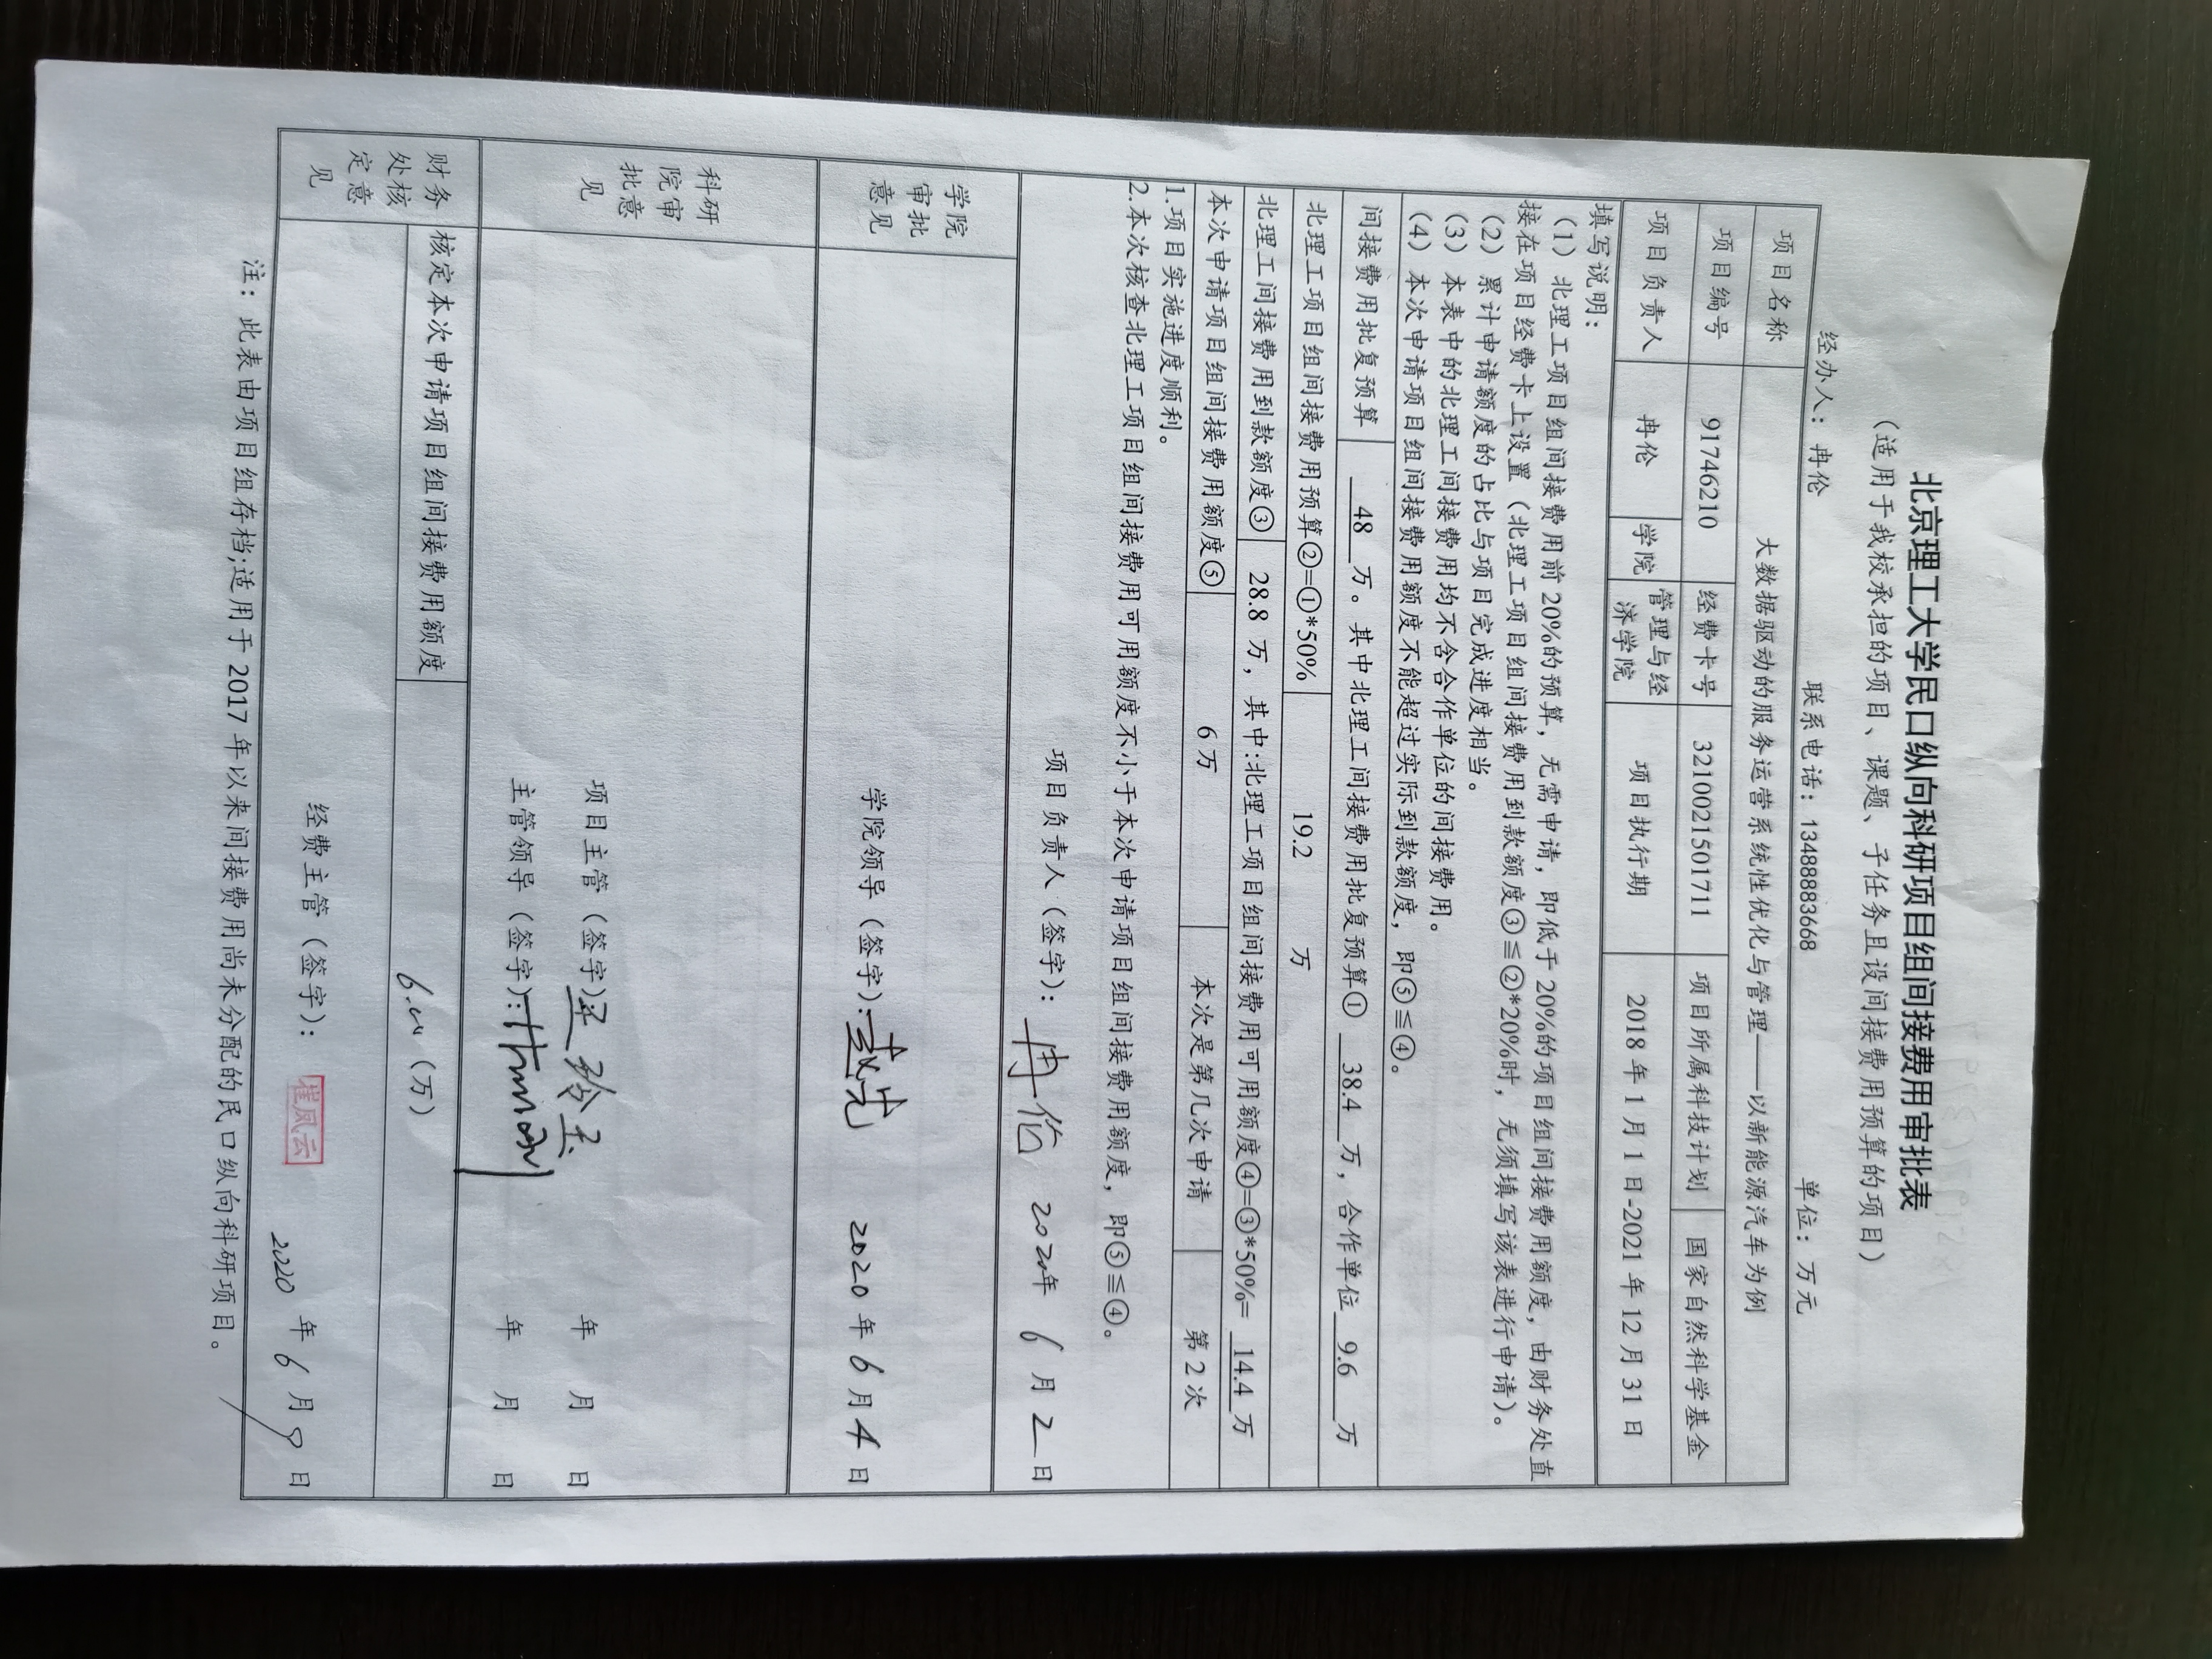 北京理工大学民口纵向科研项目组间接费用审批表
（适用于我校承担的项目、课题、子任务且设间接费用预算的项目）
经办人：冉伦 联系电话：13488883668 单位：万元
项目名称 大数据驱动的服务运营系统性优化与管理——以新能源汽车为例
项目编号 91746210 经费卡号 3210021501711 项目所属科技计划 国家自然科学基金
项目负责人 冉伦 学院 管理与经济学院 项目执行期 2018年1月1日-2021年12月31日
填写说明：
（1）北理工项目组间接费用前20%的预算，无需申请，即低于20%的项目组间接费用额度，由财务处直
接在项目经费卡上设置（北理工项目组间接费用到款额度③≦②*20%时，无须填写该表进行申请）。
（2）累计申请额度的占比与项目完成进度相当。
（3）本表中的北理工间接费用均不含合作单位的间接费用。
（4）本次申请项目组间接费用额度不能超过实际到款额度，即⑤≦④。
间接费用批复预算 48 万。其中北理工间接费用批复预算① 38.4 万，合作单位 9.6 万
北理工项目组间接费用预算②=①*50% 19.2 万
北理工间接费用到款额度③ 28.8 万，其中:北理工项目组间接费用可用额度④=③*50%= 14.4 万
本次申请项目组间接费用额度⑤ 6万 本次是第几次申请 第2次
1.项目实施进度顺利。
2.本次核查北理工项目组间接费用可用额度不小于本次申请项目组间接费用额度，即⑤≦④。
项目负责人（签字）： 冉伦 2020年 6 月 2 日
学院审批意见
学院领导（签字）： 2020 年 6 月 4 日
科研院审批意见
项目主管（签字） 年 月 日
主管领导（签字）： 年 月 日
财务处核定意见
核定本次申请项目组间接费用额度 （万）
经费主管（签字）： 崔凤云 2020 年 6 月 9 日
注：此表由项目组存档;适用于2017年以来间接费用尚未分配的民口纵向科研项目。